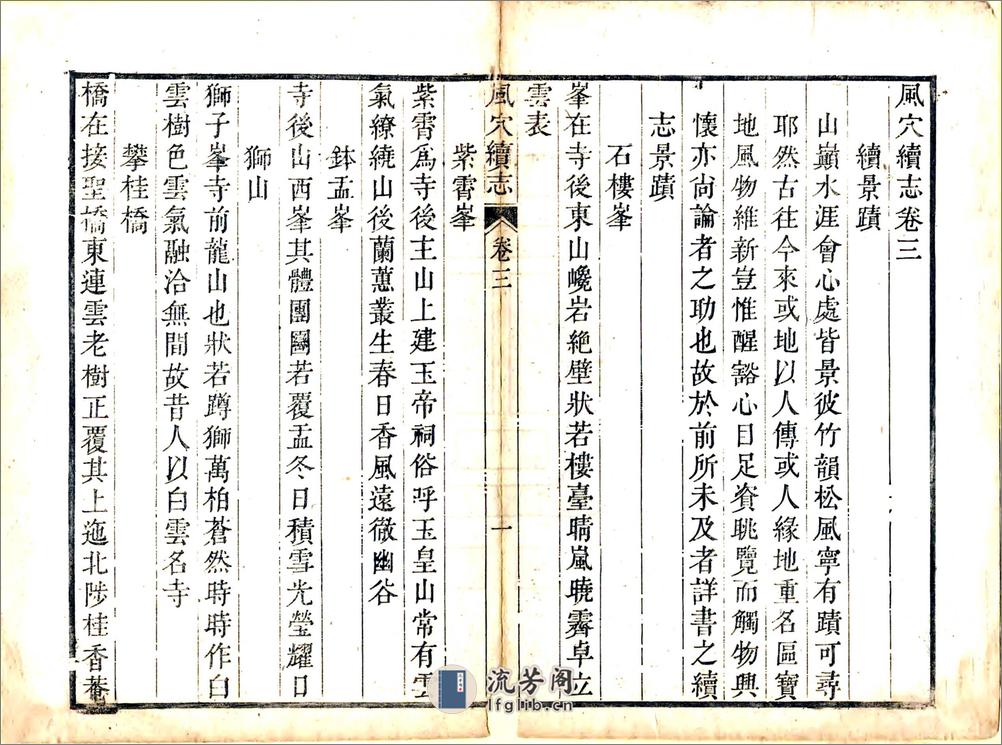 風穴續志卷三
續景蹟
山巔水涯會心處皆景彼竹韻松風寧有蹟可尋
耶然古往今來或地以人傳或人緣地重名區寶
地風物維新豈惟醒豁心目足資眺覽而觸物興
懷亦尙論者之助也故於前所未及者詳書之續
志景蹟
石樓峯
峯在寺後東山巉岩絶壁狀若樓臺晴嵐曉霽卓立
雲表
風穴續志 卷三 一
紫霄峯
紫霄爲寺後主山上建玉帝祠俗呼玉皇山常有雲
氣繚繞山後蘭蕙叢生春日香風遠徹幽谷
鉢盂峯
寺後山西峯其體團圞若覆盂冬日積雪光瑩耀日
獅山
獅子峯寺前龍山也狀若蹲獅萬柏蒼然時時作白
雲樹色雲氣融洽無間故昔人以白雲名寺
攀桂橋
橋在接聖橋東連雲老樹正覆其上迤北陟桂香菴
流芳阁
lfglib.cn